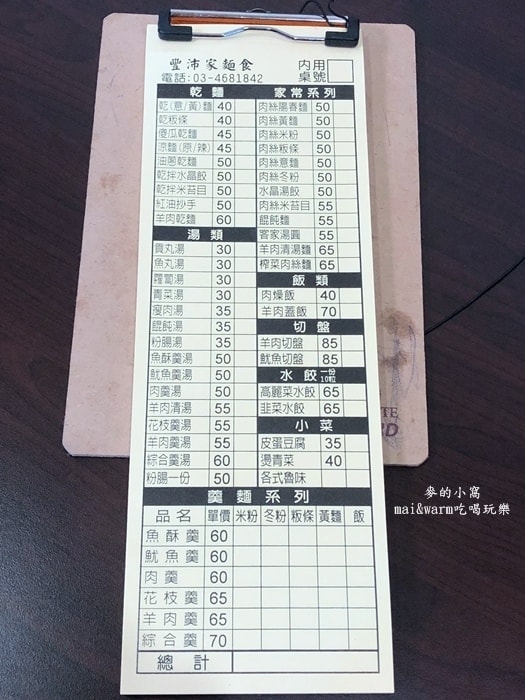 豐沛家麵食
電話:03-4681842
內用
桌號
乾麵
乾(意/黃)麵 40
乾粄條 40
傻瓜乾麵 45
涼麵(原/辣) 45
油蔥乾麵 50
乾拌水晶餃 50
乾拌米苔目 50
紅油抄手 50
羊肉乾麵 60
湯類
貢丸湯 30
魚丸湯 30
蘿蔔湯 30
青菜湯 30
瘦肉湯 35
餛飩湯 35
粉腸湯 35
魚酥羹湯 50
魷魚羹湯 50
肉羹湯 50
羊肉清湯 55
花枝羹湯 55
羊肉羹湯 55
綜合羹湯 60
粉腸一份 50
家常系列
肉絲陽春麵 50
肉絲黃麵 50
肉絲米粉 50
肉絲粄條 50
肉絲意麵 50
肉絲冬粉 50
水晶湯餃 50
肉絲米苔目 55
餛飩麵 55
客家湯圓 55
羊肉清湯麵 65
榨菜肉絲麵 65
飯類
肉燥飯 40
羊肉蓋飯 70
切盤
羊肉切盤 85
魷魚切盤 85
水餃 一份10粒
高麗菜水餃 65
韭菜水餃 65
小菜
皮蛋豆腐 35
燙青菜 40
各式魯味
羹麵系列
品名 單價 米粉 冬粉 粄條 黃麵 飯
魚酥羹 60
魷魚羹 60
肉羹 60
花枝羹 65
羊肉羹 65
綜合羹 70
總計
麥的小窩
mai&warm吃喝玩樂